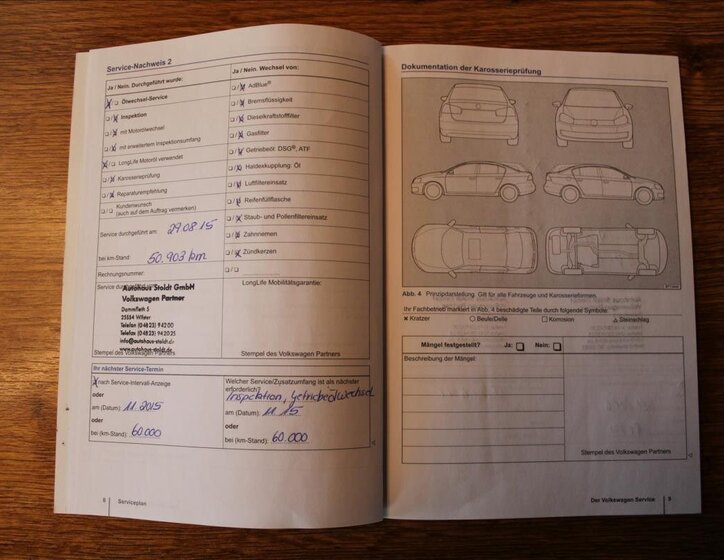 Service-Nachweis 2
Ja / Nein. Durchgeführt wurde:
Ölwechsel-Service
Inspektion
mit Motorölwechsel
mit erweitertem Inspektionsumfang
LongLife Motoröl verwendet
Karosserieprüfung
Reparaturempfehlung
Kundenwunsch
(auch auf dem Auftrag vermerken)
Service durchgeführt am: 29.08.15
bei km-Stand: 50.903 km
Rechnungsnummer:
Service
Autohaus Stoldt GmbH
Volkswagen Partner
Dammfleth 5
25554 Wilster
Telefon (04823) 942 00
Telefax (04823) 9420 25
info@autohaus-stoldt.de
www.autohaus-stoldt.de
Stempel des Volkswagen Partners
Ja / Nein. Wechsel von:
AdBlue®
Bremsflüssigkeit
Dieselkraftstofffilter
Gasfilter
Getriebeöl: DSG®, ATF
Haldexkupplung: Öl
Luftfiltereinsatz
Reifenfüllflasche
Staub- und Pollenfiltereinsatz
Zahnriemen
Zündkerzen
LongLife Mobilitätsgarantie:
Stempel des Volkswagen Partners
Ihr nächster Service-Termin
X nach Service-Intervall-Anzeige
oder
am (Datum): 11.2015
oder
bei (km-Stand): 60.000
Welcher Service/Zusatzumfang ist als nächster
erforderlich?
Inspektion, Getriebeölwechsel
am (Datum): 11.15
oder
bei (km-Stand): 60.000
8 Serviceplan
Dokumentation der Karosserieprüfung
Abb. 4 Prinzipdarstellung: Gilt für alle Fahrzeuge und Karosserieformen.
Ihr Fachbetrieb markiert in Abb. 4 beschädigte Teile durch folgende Symbole:
× Kratzer ○ Beule/Delle □ Korrosion △ Steinschlag
Mängel festgestellt? Ja: □ Nein: □
Beschreibung der Mängel:
Stempel des Volkswagen Partners
Der Volkswagen Service 9